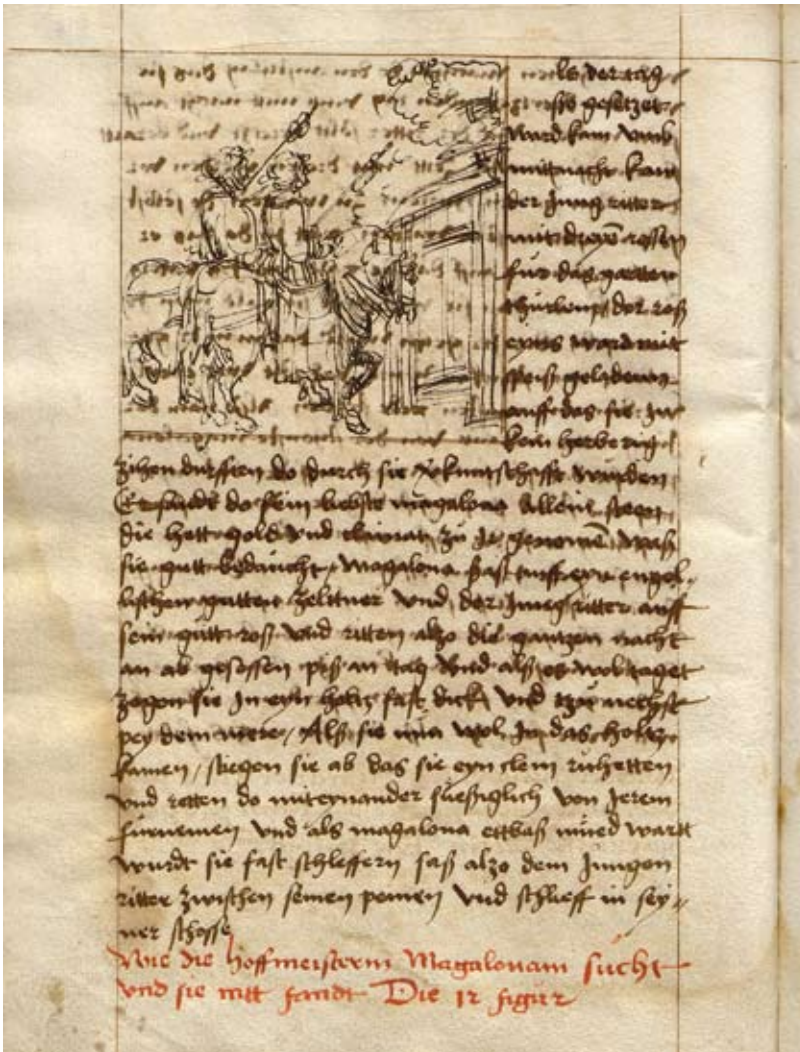 als der tag
ward kam vmb
mitnacht kam
der Jung ritter
mit dreyen rossen
fur das garten
thurleyn der roß
eyns ward mit
speiß geladenn
auff das sie In
kein herberig
zihen durfften do durch sie verkuntschafft wurden
Er fandt do sein liebste magalona allein steen
die hett gold vnd cleinat zu Ir genomen waß
sie gutt bedaucht, Magalona saß auff eyn engel-
lischen gutten zelttner vnd der Jung ritter auff
sein gutt roß vnd ritten alzo die gantzen nacht
an ab gesessen piß an tag vnd alß es wol taget
zogen sie In eyn holtz fast dick vnd zu nechst
pey dem mere, Alß sie nun wol In das holtz
kamen, stiegen sie ab das sie eyn clein ruhetten
vnd retten do miteynander fließiglich von Jrem
furnemen vnd als magalona ettbaß mued wart
wurdt sie fast schleffern saß alzo dem Jungen
ritter zwischen seinen peinen vnd schlieff in sey-
ner schosse
Wie die hoffmeisterin Magalonam sucht
vnd sie nitt fandt Die 12 figur